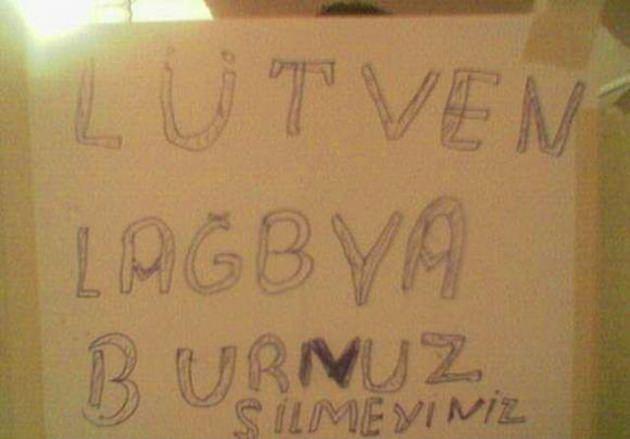 LÜTVEN
LAĞBVA
BURNUZ
SİLMEYİNİZ